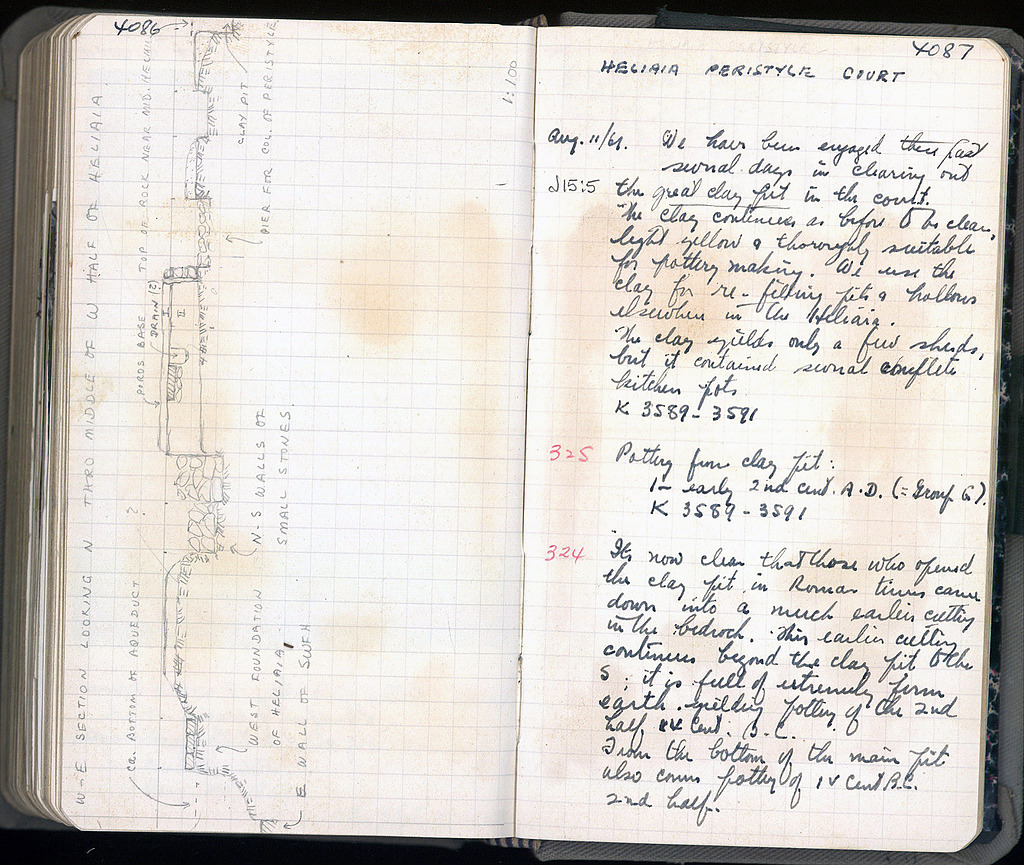 4086
W-E SECTION LOOKING N THRO MIDDLE OF W HALF OF HELIAIA
ca. BOTTOM OF AQUEDUCT
?
POROS BASE
TOP OF ROCK NEAR MID. HELIAIA
DRAIN (?)
I
II
WEST FOUNDATION
OF HELIAIA
E WALL OF SWFH
N-S WALLS OF
SMALL STONES
CLAY PIT
PIER FOR COL. OF PERISTYLE
1:100
4087
HELIAIA PERISTYLE COURT
Aug. 11/61. We have been engaged these past
several days in clearing out
J15:5 the great clay pit in the court.
The clay continues as before to be clean,
light yellow & thoroughly suitable
for pottery making. We use the
clay for re-filling pits & hollows
elsewhere in the Heliaia.
The clay yields only a few sherds,
but it contained several complete
kitchen pots
K 3589-3591
325 Pottery from clay pit:
1- early 2nd cent. A.D. (= Group G).
K 3589-3591
324 It's now clear that those who opened
the clay pit in Roman times came
down into a much earlier cutting
in the bedrock. This earlier cutting
continues beyond the clay pit to the
S; it is full of extremely firm
earth yielding pottery of the 2nd
half, IV cent. B.C.
From the bottom of the main pit
also comes pottery of IV cent B.C.
2nd half.